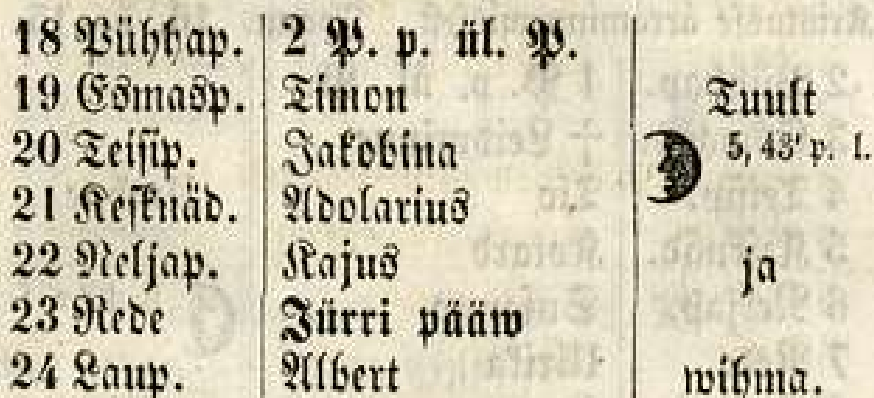 18 Pühhap. 2 P. p. ül. P.
19 Esmasp. Timon Tuult
20 Teisip. Jakobina 5, 43' p. l.
21 Kesknäd. Adolarius
22 Neljap. Kajus ja
23 Rede Jürri pääw
24 Laup. Albert wihma.